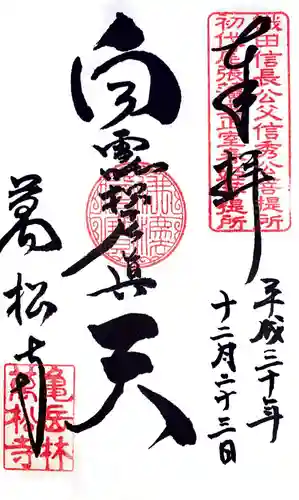 奉拝
織田信長公父信秀公菩提所
初代尾張藩主正室春姫菩提所
平成三十年
十二月二十三日
白雪吒枳尼眞天
萬松寺
亀岳林
萬松寺